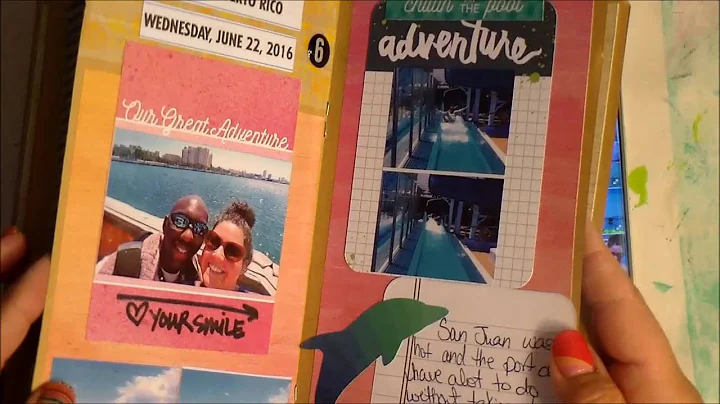 RTO RICO
WEDNESDAY, JUNE 22, 2016
6
Our Great Adventure
YOUR SMILE
THE pool
adventure
San Juan was
hot and the port
have alot to do
without